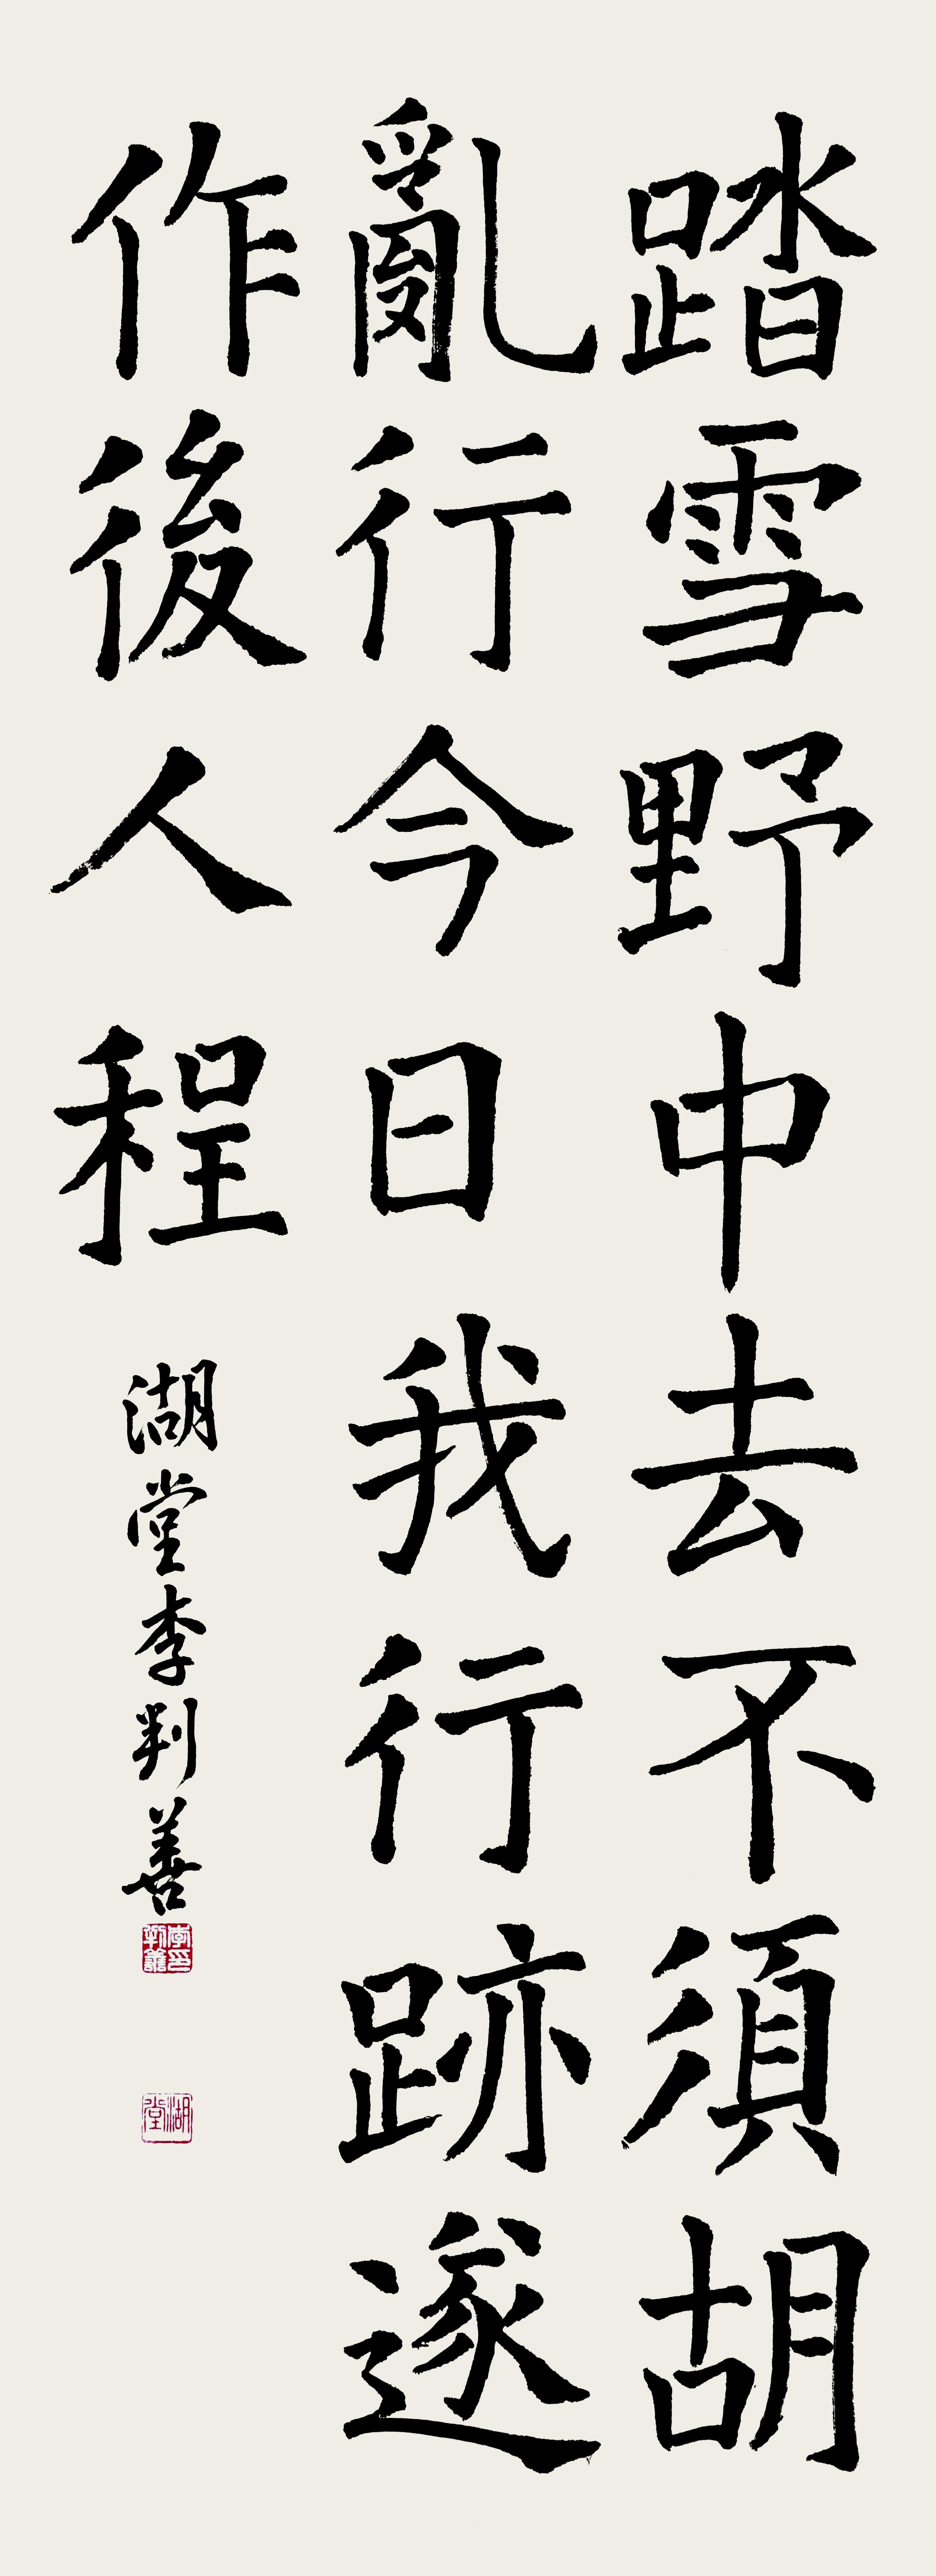 踏雪野中去不須胡
亂行今日我行跡遂
作後人程
湖堂李判善
湖堂